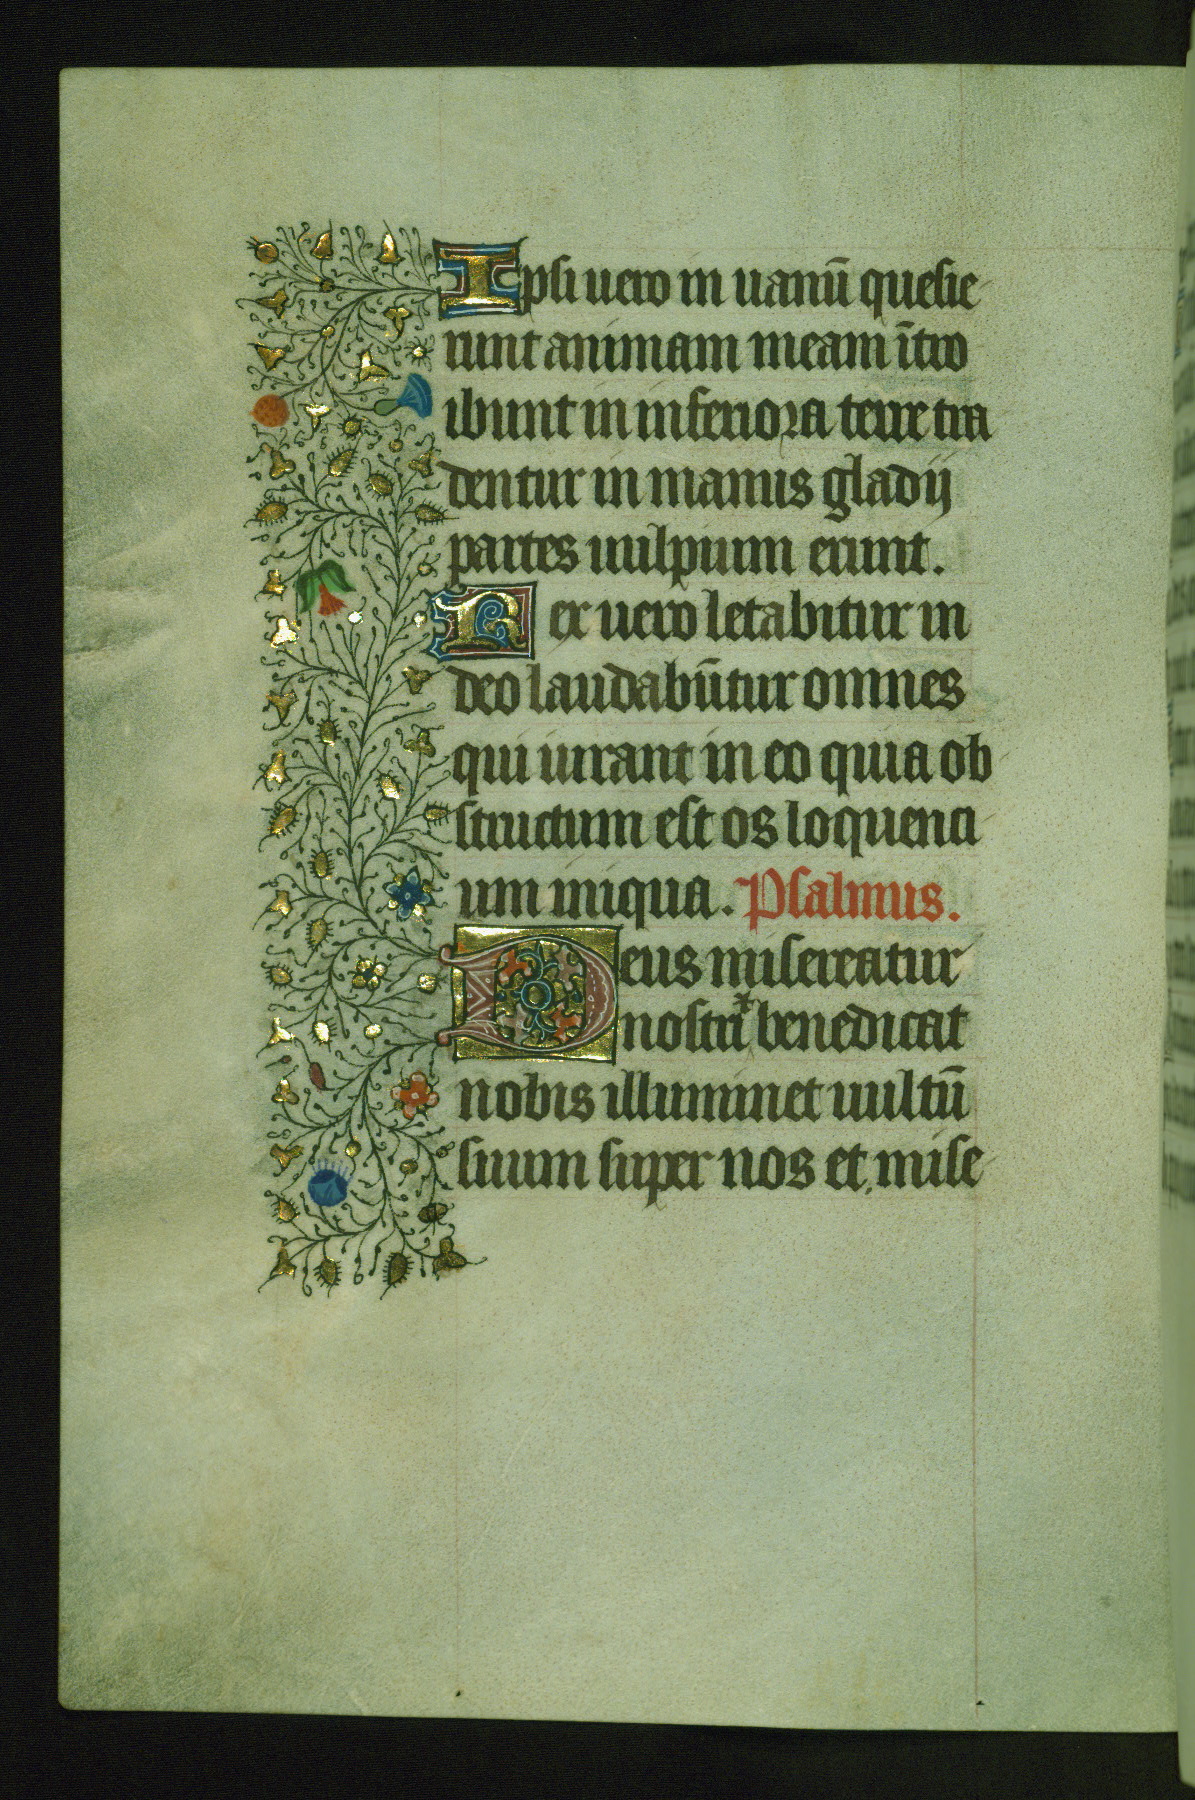 Ipsi uero in uanū quesie
runt animam meam ītro
ibunt in inferiora terre tra
dentur in manus gladij
partes uulpium erunt.
Rex uero letabitur in
deo laudabūtur omnes
qui iurant in eo quia ob
structum est os loquenci
um iniqua. Psalmus.
Deus misereatur
nostri ⁊ benedicat
nobis illuminet uultū
suum super nos et mise